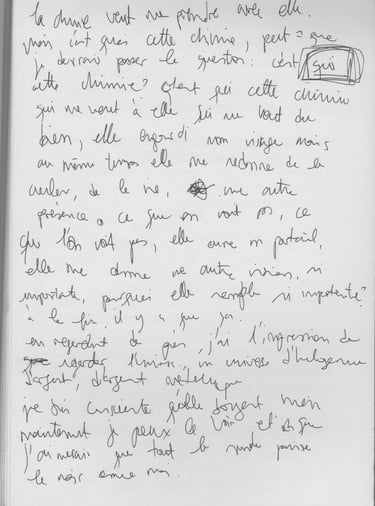 la chimie veut me prendre avec elle.
mais c'est quoi cette chimie, peut-être que
je devrais poser la question: c'est qui
cette chimie? c'est qui cette chimie
qui me veut à elle qui me veut du
bien, elle mon visage mais
au même temps elle me redonne de la
couleur, de la vie, une autre
présence. ce que on voit pas, ce
que l'on voit pas, elle ouvre un portail,
elle me donne une autre vision, si
importante, pourquoi elle semble si importante?
à la fin il y a que ça.
en regardant de près, j'ai l'impression de
regarder l'univers, un univers d'halogénure
d'argent, d'argent métallique
je suis
maintenant je peux le voir et
j'aimerais que tout le monde puisse
le voir comme moi.